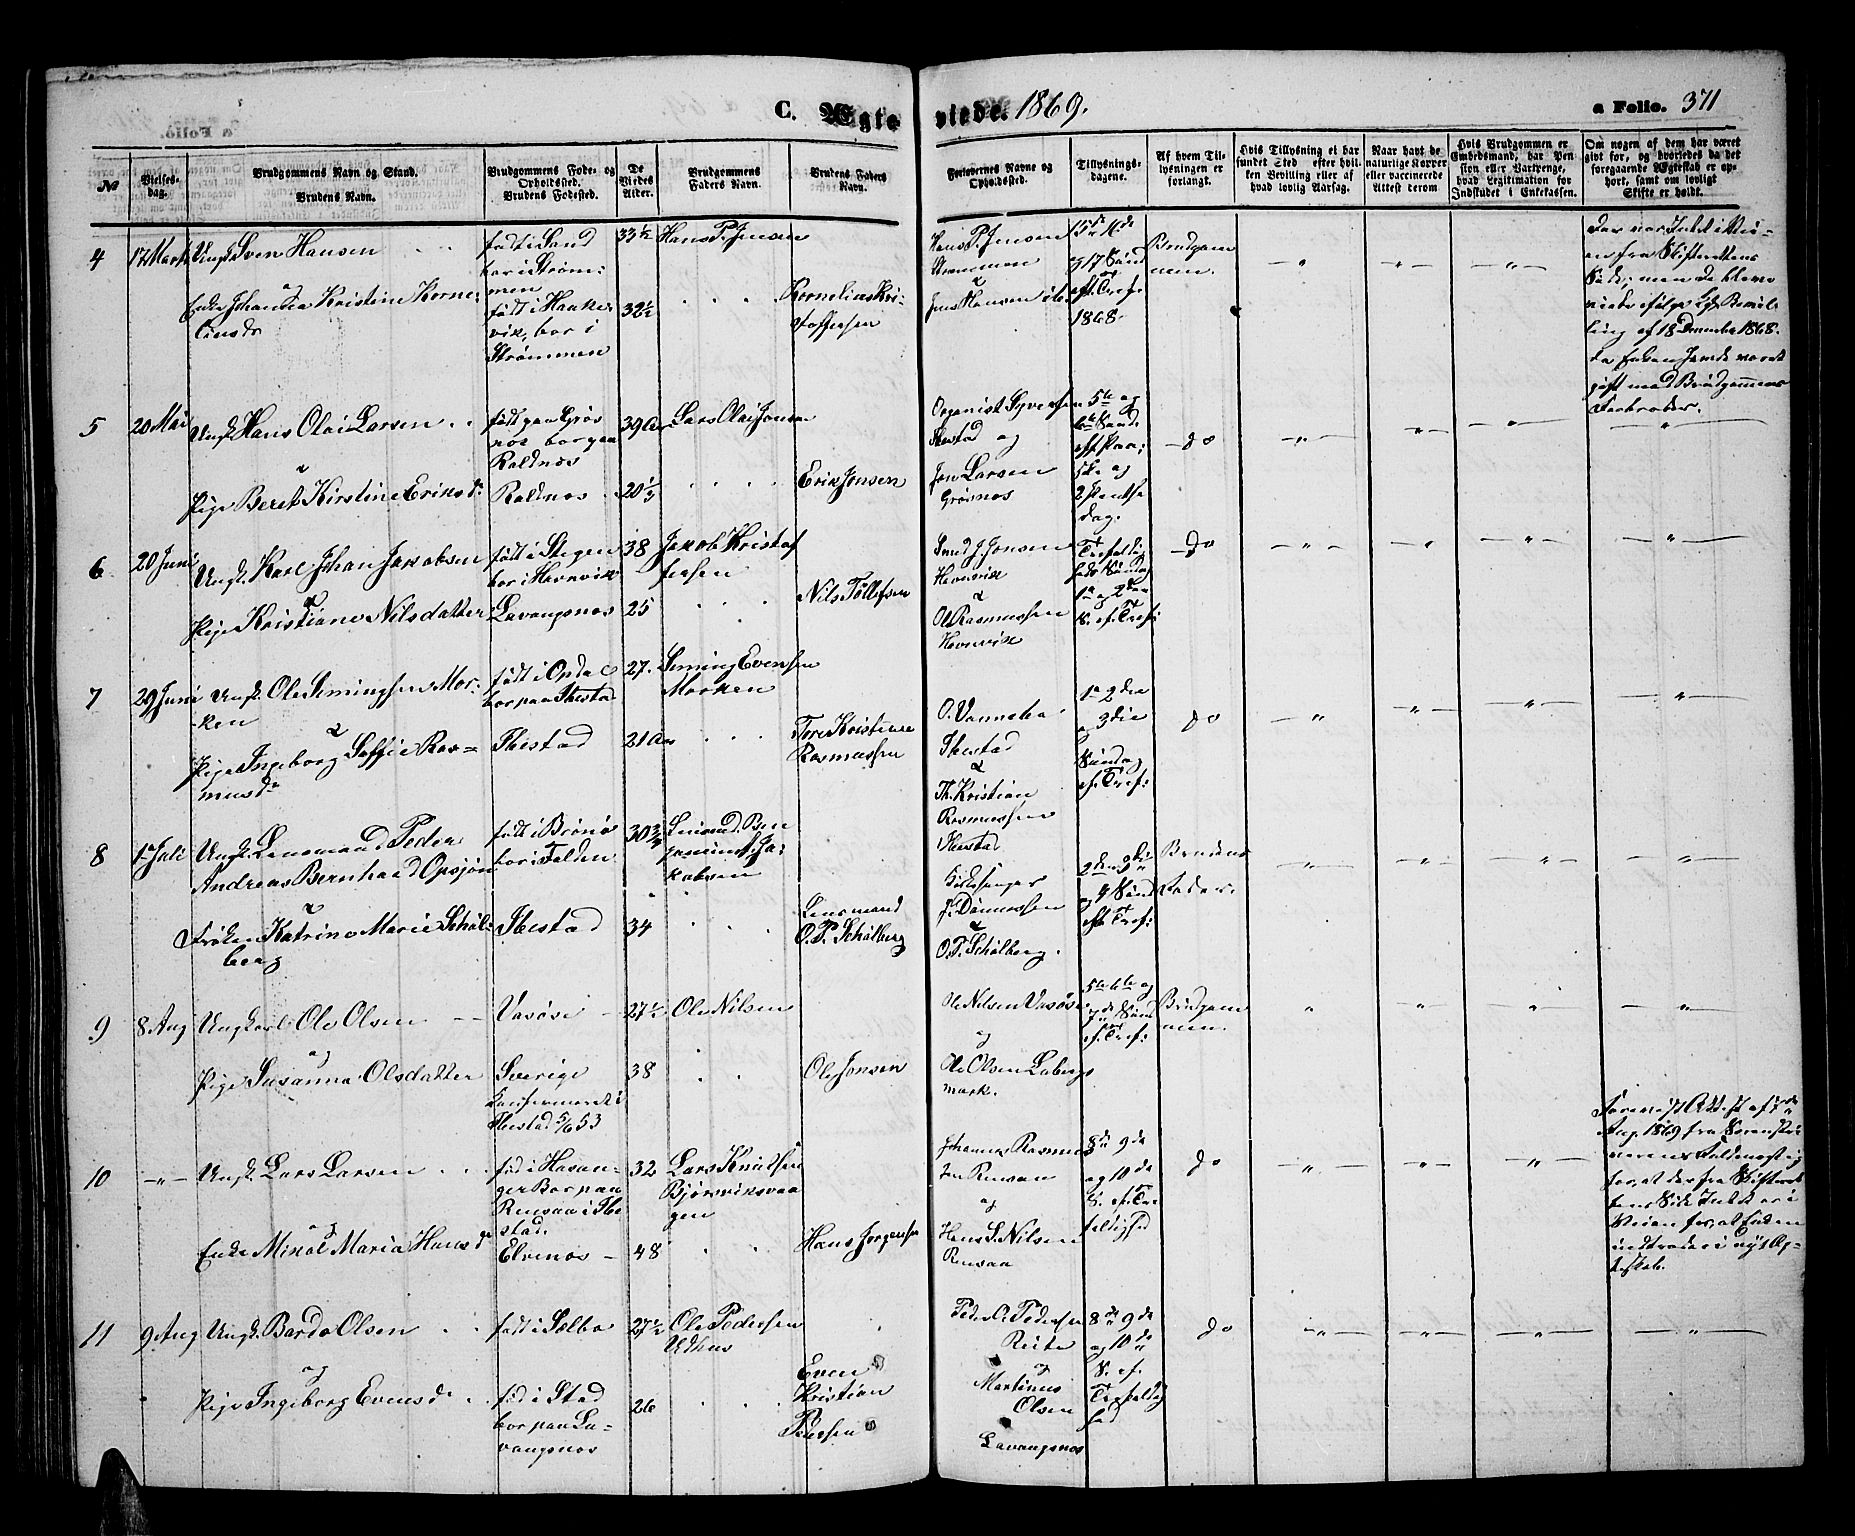 C. Ægteviede. 1869.
a Folio. 371
№
Vielses-
dag.
Brudgommens Navn og Stand.
Brudens Navn.
Brudgommens Føde- og
Opholdssted.
Brudens Fødested.
De
Viedes
Alder.
Brudgommens
Faders Navn.
Brudens Faders
Navn.
Forlovernes Navne og
Opholdssted.
Tillysnings-
dagene.
Af hvem Til-
lysningen er
forlangt.
Hvis Tillysning ei har
fundet Sted efter hvil-
ken Bevilling eller af
hvad lovlig Aarsag.
Naar havt de
naturlige Kopper
eller vaccinerede
Attest derom
Hvis Brudgommen er
Embedsmand, har Pen
sion eller Vartpenge,
hvad Legitimation for
Indskudet i Enkekassen.
Om nogen af dem har været
gift før, og hvorledes da det
foregaaende Ægteskab er op-
hørt, samt om lovligt
Skifte er holdt.
4
12 Marts
Ungk. Sven Hansen
og
Enke Johanna Kristine Korne-
liusdr
født i Sand
bor i Strøm-
men
født i Haake-
vik, bor i
Strømmen
33½
32½
Hans P. Jensen
Kornelius Kri-
stoffersen
Hans P. Jensen
Strømmen
&
Jens Hansen ib.
15de 16de
og 17 Sønd
eft. Tref.
1868.
Brudgom
men.
Der var Intet i Vei-
en fra Skifterettens
Side; men de bleve
viede ifølge Kgl. Bevil-
ling af 18 December 1868.
da Enken havde været
gift med Brudgommens
Farbroder.
5
20 Mai
Ungk. Hans Olai Larsen
&
Pige Beret Kirstine Eriksdr
født paa Grøs
nes bor paa
Roldnes
Roldnes
39 Aar
20⅓
Lars Olai Jonsen
Erik Jonsen
Organist Syversen
Ibestad og
Jon Larsen
Grøsnes
5te og
6te Sønd.
eft. Paa:
5te og
2 Pentse
dag.
do
6
20 Juni
Ungk. Karl Johan Jakobsen
&
Pige Kristiane Nilsdatter
født i Stegen
bor i Havnvik
Lavangsnes
38
25
Jakob Kristof
fersen
Nils Tollefsen
J. Jonsen
Havnvik
&
Ole Rasmussen
Havnvik
Trefoldig
heds Søndag
1ste og 2den
S. ef. Tref:
do
7
29 Juni
Ungk. Ole Simingsen Mor-
ken
&
Pige Ingeborg Soffie Ras-
musdr
født i Opdal
bor paa Ibestad
Ibestad
27.
21 Aar
Siming Evensen
Morken
Tore Kristian
Rasmussen
O. Vanneba
Ibestad
&
Th. Kristian
Rasmussen
Ibestad
1ste 2den
og 3die
Søndag
ef. Tref:
do
8
1ste Juli
Ungk. Lensmand Peder
Andreas Bernhard Opsjøn
&
Frøken Katrine Marie Schøl-
berg
født i Brønø
bor i Folden
Ibestad
30¾
34
Lensmand Ben
jamin Ja-
kobsen
Lensmand
O. P. Schølberg
Kirkesanger
J. Dønnessen
&
O. P. Schølberg.
2den 3die
og 4 Sønd
eft. Tref:
Brudens
Fader.
9
8 Aug
Ungkarl Ole Olsen
og
Pige Susanna Olsdatter
Vasøse
Sverige
konfirmeret i
Ibestad 5/6 53
27½
38
Ole Nilsen
Ole Jonsen
Ole Nilsen Vasøse
og
Ole Olsen Labergs
mark.
5te 6te og
7de Sønd
ef. Tref:
Brudgom
men.
10
Ungk. Lars Larsen
og
Enke Mikal Maria Hansdr
fød i Hasan-
ger Bor paa
Rensaa i Ibe
stad.
Elvenes
32
48
Lars Knudsen
Bjørsviksvaa
gen
Hans Jørgensen
Johannes Rasmus
sen Rensaa
og
Hans S. Nilsen
Rensaa
8de 9de
og 10de
S. ef. Tre
foldighed
do
Forevist Attest af 7de
Aug. 1869 fra Sorenskri
veren
for, at der fra Skifteret
tens Side Intet er i
Veien for, at Enken
indtræder i nyt Æg-
teskab.
11
9 Aug
Ungk. Bardo Olsen
og
Pige Ingeborg Evensdr
født i Sælbo
fød i Stod
bor paa La-
vangsnes
27½
26
Ole Pedersen
Udhus
Even
Kristian
Pedersen
Peder O. Pedersen
og
Martinus
Olsen
Lavangsnes
8de 9de
og 10de
S. ef.
Trefoldig
hed
do